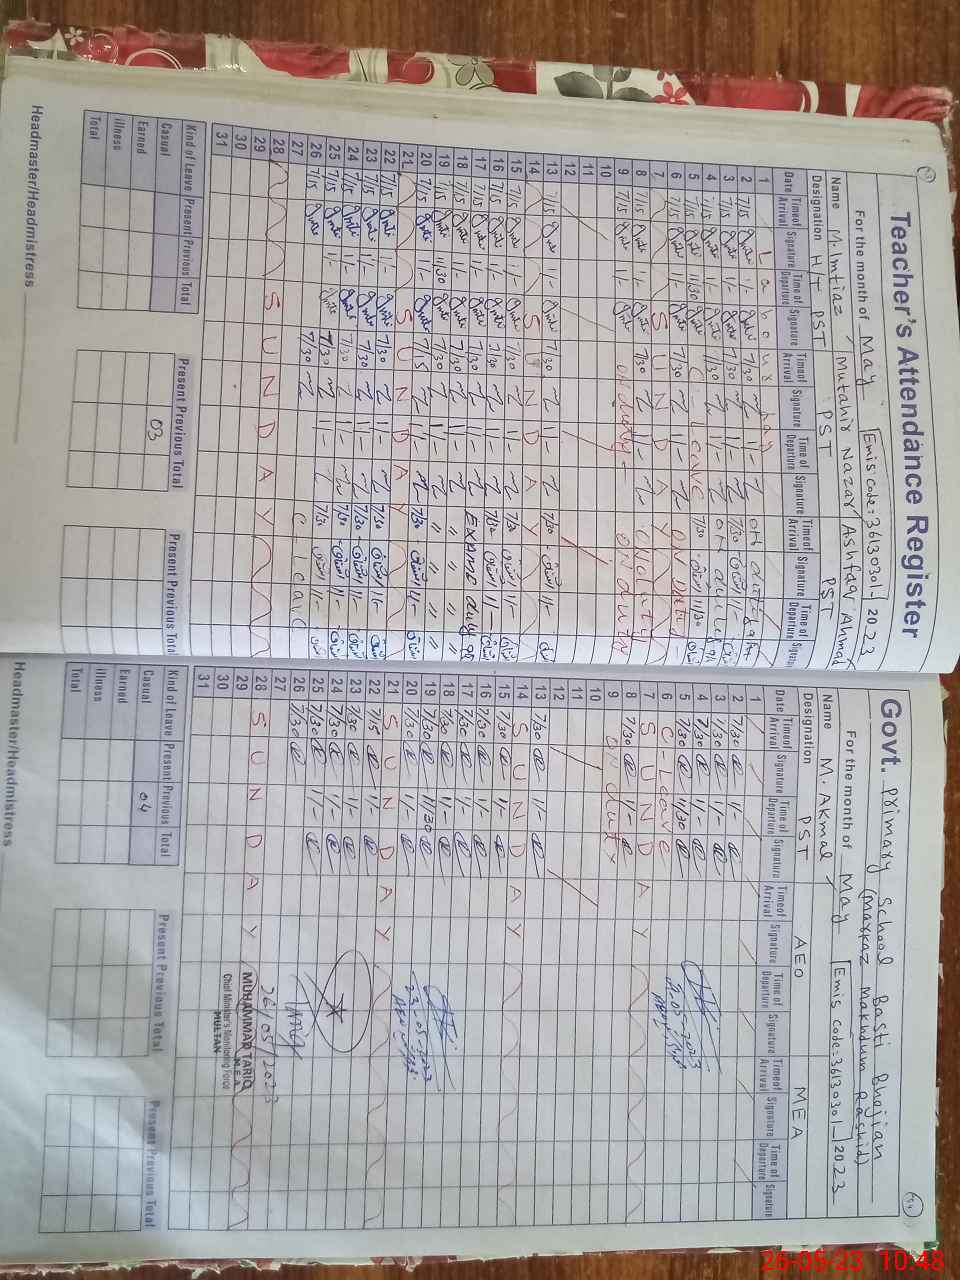 Teacher's Attendance Register
For the month of May Emis code:-36130301- 2023
Name M.Imtiaz Mutahir Nazar Ashfaq Ahmad
Designation H/T PST PST PST
Date Time of Arrival Signature Time of Departure Signature Time of Arrival Signature Time of Departure Signature Time of Arrival Signature Time of Departure Signature
1 Labour Day
2 7/15 1/- 7/30 1/-
3 7/15 1/- 7/30 1/- 7/30 1/-
4 7/15 1/- 7/30 1/-
5 7/15 11/30 C-Leave 7/30 11/30
6 7/15 1/- 7/30 1/- ON Duty
7 SUNDAY
8 7/15 1/- 7/30 1/- ON duty
9 7/15 1/- on duty ON duty
10
11
12
13 7/15 1/- 7/30 1/- 7/30 1/-
14 SUNDAY
15 7/15 1/- 7/30 1/- 7/30 1/-
16 7/15 1/- 7/30 1/- 7/30 1/-
17 7/15 1/- 7/30 1/- Exams duty
18 7/15 1/- 7/30 1/- " " "
19 7/15 11/30 7/30 " " "
20 7/15 1/- 7/15 1/- 7/30 1/-
21 SUNDAY
22 7/15 1/- 7/30 1/- 7/30 1/-
23 7/15 1/- 7/30 1/- 7/30 1/-
24 7/15 1/- 7/30 1/- 7/30 1/-
25 7/15 1/- 7/30 1/- 7/30 1/-
26 7/15 7/30 C-Leave
27
28 SUNDAY
29
30
31
Kind of Leave Present Previous Total Present Previous Total Present Previous Total
Casual 03
Earned
illness
Total
Headmaster/Headmistress
Govt. Primary School Basti Bhojian
(Markaz Makhdum Rashid)
For the month of May Emis code:-36130301- 2023
Name M. Akmal
Designation PST AEO MEA
Date Time of Arrival Signature Time of Departure Signature Time of Arrival Signature Time of Departure Signature Time of Arrival Signature Time of Departure Signature
1
2 7/30 1/-
3 7/30 1/-
4 7/30 1/-
5 7/30 11/30
6 C-Leave
7 SUNDAY
8 7/30 1/-
9 ON duty
10
11
12
13 7/30 1/-
14 SUNDAY
15 7/30 1/-
16 7/30 1/-
17 7/30 1/-
18 7/30 1/-
19 7/30 11/30
20 7/30 1/-
21 SUNDAY
22 7/15 1/-
23 7/30 1/-
24 7/30 1/-
25 7/30 1/-
26 7/30
27
28 SUNDAY
29
30
31
23-05-2023
Tariq
26/05/2023
MUHAMMAD TARIQ
M.E.A
Chief Minister's Monitoring Force
MULTAN
Kind of Leave Present Previous Total Present Previous Total Present Previous Total
Casual 04
Earned
illness
Total
Headmaster/Headmistress
26-05-23 10:48